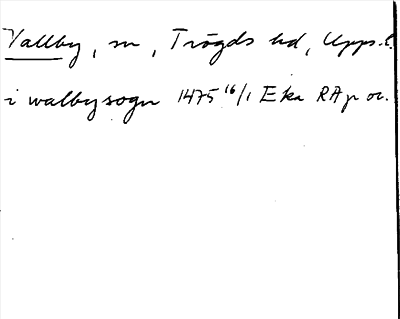 Vallby, sn, Trögds hd, Upps. l.
i walby sogn 1475 16/1 Eka RA p or.